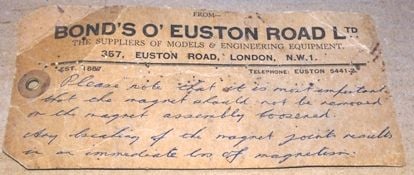 FROM—
BOND'S O' EUSTON ROAD LTD
THE SUPPLIERS OF MODELS & ENGINEERING EQUIPMENT.
357, EUSTON ROAD, LONDON, N.W.1.
EST. 1887 TELEPHONE: EUSTON 5441-2
Please note that it is most important
that the magnet should not be removed
or the magnet assembly loosened.
Any breaking of the magnet joint results
in an immediate loss of magnetism.